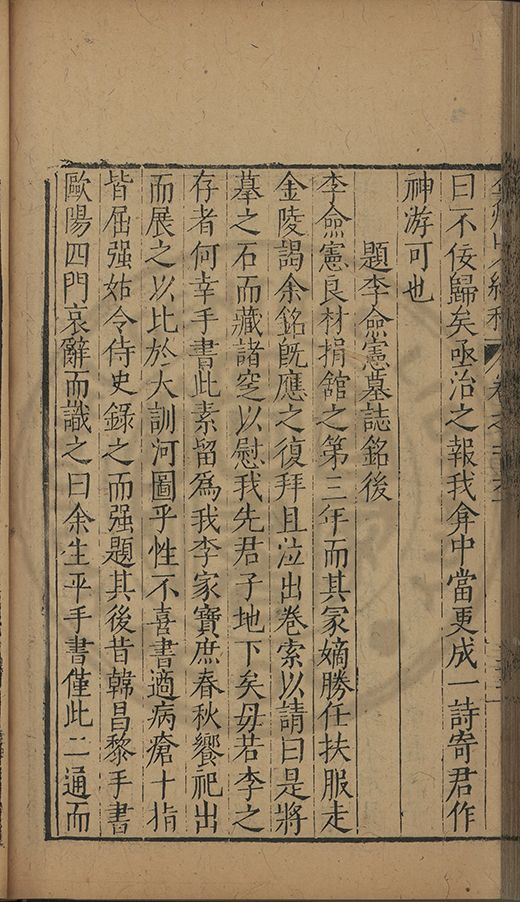 曰不佞歸矣亟治之報我弇中當更成一詩寄君作
神游可也
題李僉憲墓誌銘後
李僉憲良材捐舘之第三年而其冡嫡勝任扶服走
金陵謁余銘旣應之復拜且泣出卷索以請曰是將
墓之石而藏諸窆以慰我先君子地下矣毋若李之
存者何幸手書此素留爲我李家寶庶春秋饗祀出
而展之以比於大訓河圖乎性不喜書適病瘡十指
皆屈强姑令侍史錄之而强題其後昔韓昌黎手書
歐陽四門哀辭而識之曰余生平手書僅此二通而